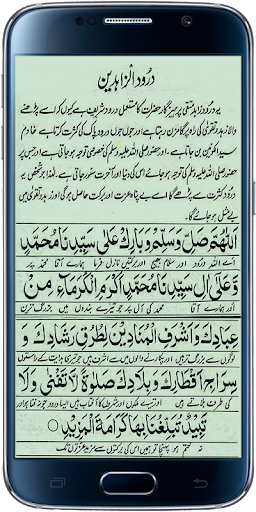 درود الزاہدین
یہ درود زاہد متقی پرہیزگار حضرات کا مستعمل درود شریف ہے کیوں کہ اسے پڑھنے
والا زہد تقویٰ کی راہ پر گامزن رہتا ہے اور جوں جوں درود پاک کی کثرت کرتا ہے خادم
سید الکونین بن جاتا ہے۔ اور حضور صلی اللہ علیہ وسلم کی خصوصی توجہ ہو جاتی ہے اور جس پر
حضور صلی اللہ علیہ وسلم کی توجہ ہو جائے اس کی دنیا اور آخرت سنور جاتی ہے۔ لہٰذا جو شخص یہ
درود کثرت سے پڑھے گا اسے بے پناہ عزت اور برکت حاصل ہو گی اور زہد تقویٰ میں
بے مثل ہو جائے گا۔
اَللّٰهُمَّ صَلِّ وَسَلِّمْ وَبَارِكْ عَلٰى سَيِّدِنَا مُحَمَّدٍ
اے اللہ درود اور سلام بھیج اور برکتیں نازل فرما ہمارے آقا محمد پر
وَّعَلٰى اٰلِ سَيِّدِنَا مُحَمَّدٍ اَكْرَمِ الْكُرَمَآءِ مِنْ
اور ہمارے آقا محمد کی آل پر جو تیرے بندوں میں بزرگ ترین
عِبَادِكَ وَاَشْرَفِ الْمُنَادِيْنَ لِطُرُقِ رَشَادِكَ وَ
لوگوں سے بزرگ تریں ہیں اور پکارنے والوں سے اشرف ہیں جو تیری ہدایت کے راستوں
سِرَاجِ اَقْطَارِكَ وَبِلَادِكَ صَلٰوةً لَّا تَفْنٰى وَلَا
کی طرف بلاتے ہیں اور تیرے ملکوں اور شہروں کا آفتاب ہیں ایسا درود جو نہ فنا ہو اور
تَبِيْدُ تُبَلِّغُنَا بِهَا كَرَامَةَ الْمَزِيْدِ
نہ ختم ہو پہنچا تو ہم ہیں اس کی برکتوں سے مزید عزتوں تک